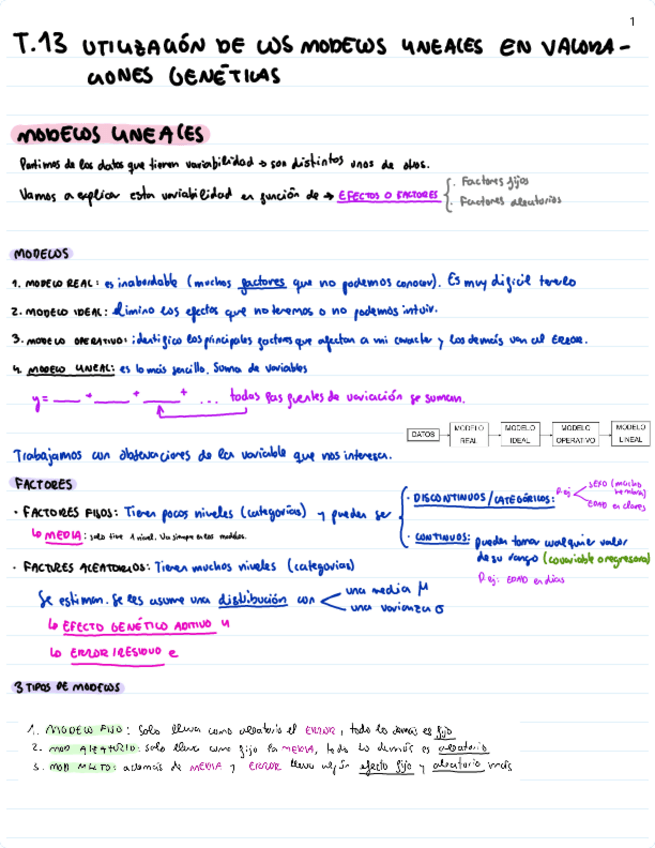 1
T.13 UTILIZACIÓN DE LOS MODELOS LINEALES EN VALORA-
CIONES GENÉTICAS
MODELOS LINEALES
Partimos de los datos que tienen variabilidad → son distintos unos de otros.
Vamos a explicar esta variabilidad en función de → EFECTOS O FACTORES { · Factores fijos
· Factores aleatorios
MODELOS
1. MODELO REAL: es inabordable (muchos factores que no podemos conocer). Es muy difícil tenerlo
2. MODELO IDEAL: Elimino los efectos que no tenemos o no podemos intuir.
3. MODELO OPERATIVO: identifico los principales factores que afectan a mi caracter y los demás van al ERROR.
4. MODELO LINEAL: es lo más sencillo. Suma de variables
y = ___ + ___ + ___ + ... todas las fuentes de variación se suman.
DATOS → MODELO REAL → MODELO IDEAL → MODELO OPERATIVO → MODELO LINEAL
Trabajamos con observaciones de la variable que nos interesa.
FACTORES
· FACTORES FIJOS: Tienen pocos niveles (categorías) y pueden ser
· DISCONTINUOS/CATEGÓRICOS: P.ej SEXO (macho hembra)
EDAD en clases
↳ MEDIA: solo tiene 1 nivel. Va siempre en los modelos.
· CONTINUOS: pueden tomar cualquier valor
de su rango (covariable o regresora)
P.ej: EDAD en días
· FACTORES ALEATORIOS: Tienen muchos niveles (categorías)
Se estiman. Se les asume una distribución con < una media μ
una varianza σ
↳ EFECTO GENÉTICO ADITIVO u
↳ ERROR / RESIDUO e
3 TIPOS DE MODELOS
1. MODELO FIJO: Solo lleva como aleatorio el ERROR, todo lo demás es fijo
2. MOD ALEATORIO: solo lleva como fijo la MEDIA, todo lo demás es aleatorio
3. MOD MIXTO: además de MEDIA y ERROR lleva algún efecto fijo y aleatorio más